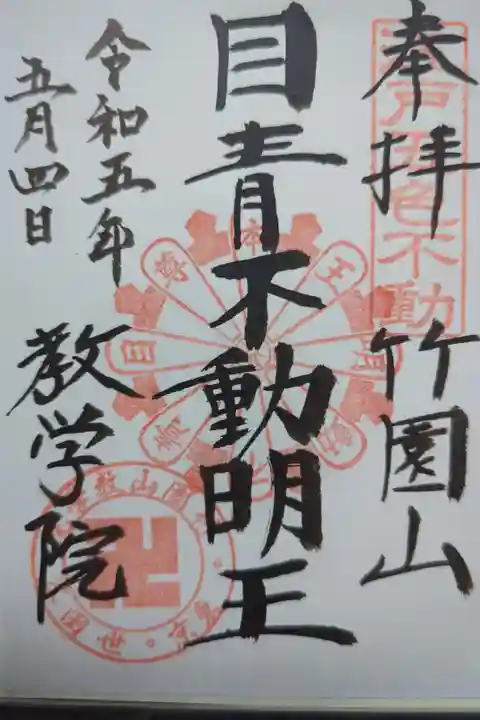 奉拝
竹園山
戸五色不動
目青不動明王
令和五年
五月四日
教学院